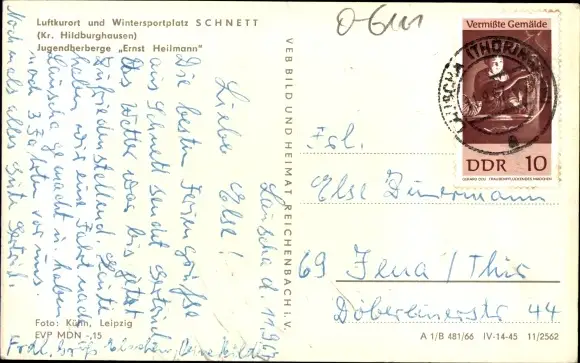 Luftkurort und Wintersportplatz SCHNETT
(Kr. Hildburghausen)
Jugendherberge „Ernst Heilmann"
Lauscha d. 11.9.67
Liebe Else!
Die besten Feriengrüße
aus Schnett sendet Gertrud.
Das Wetter war bis jetzt
zufriedenstellend. Heute
haben wir eine Fahrt nach
Lauscha gemacht u. haben
noch 3 Fahrten vor uns.
Nochmals alles Gute Gertrud.
Foto: Kühn, Leipzig
EVP MDN -,15
VEB BILD UND HEIMAT REICHENBACH i. V.
Vermißte Gemälde
DDR 10
Frl.
Else
69 Jena / Thür
Döbereinerstr 44
A 1/B 481/66 IV-14-45 11/2562